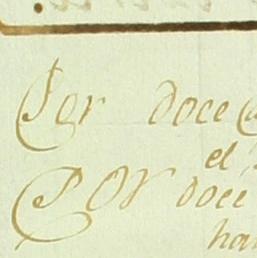 Por doce
el
POR doce
ha